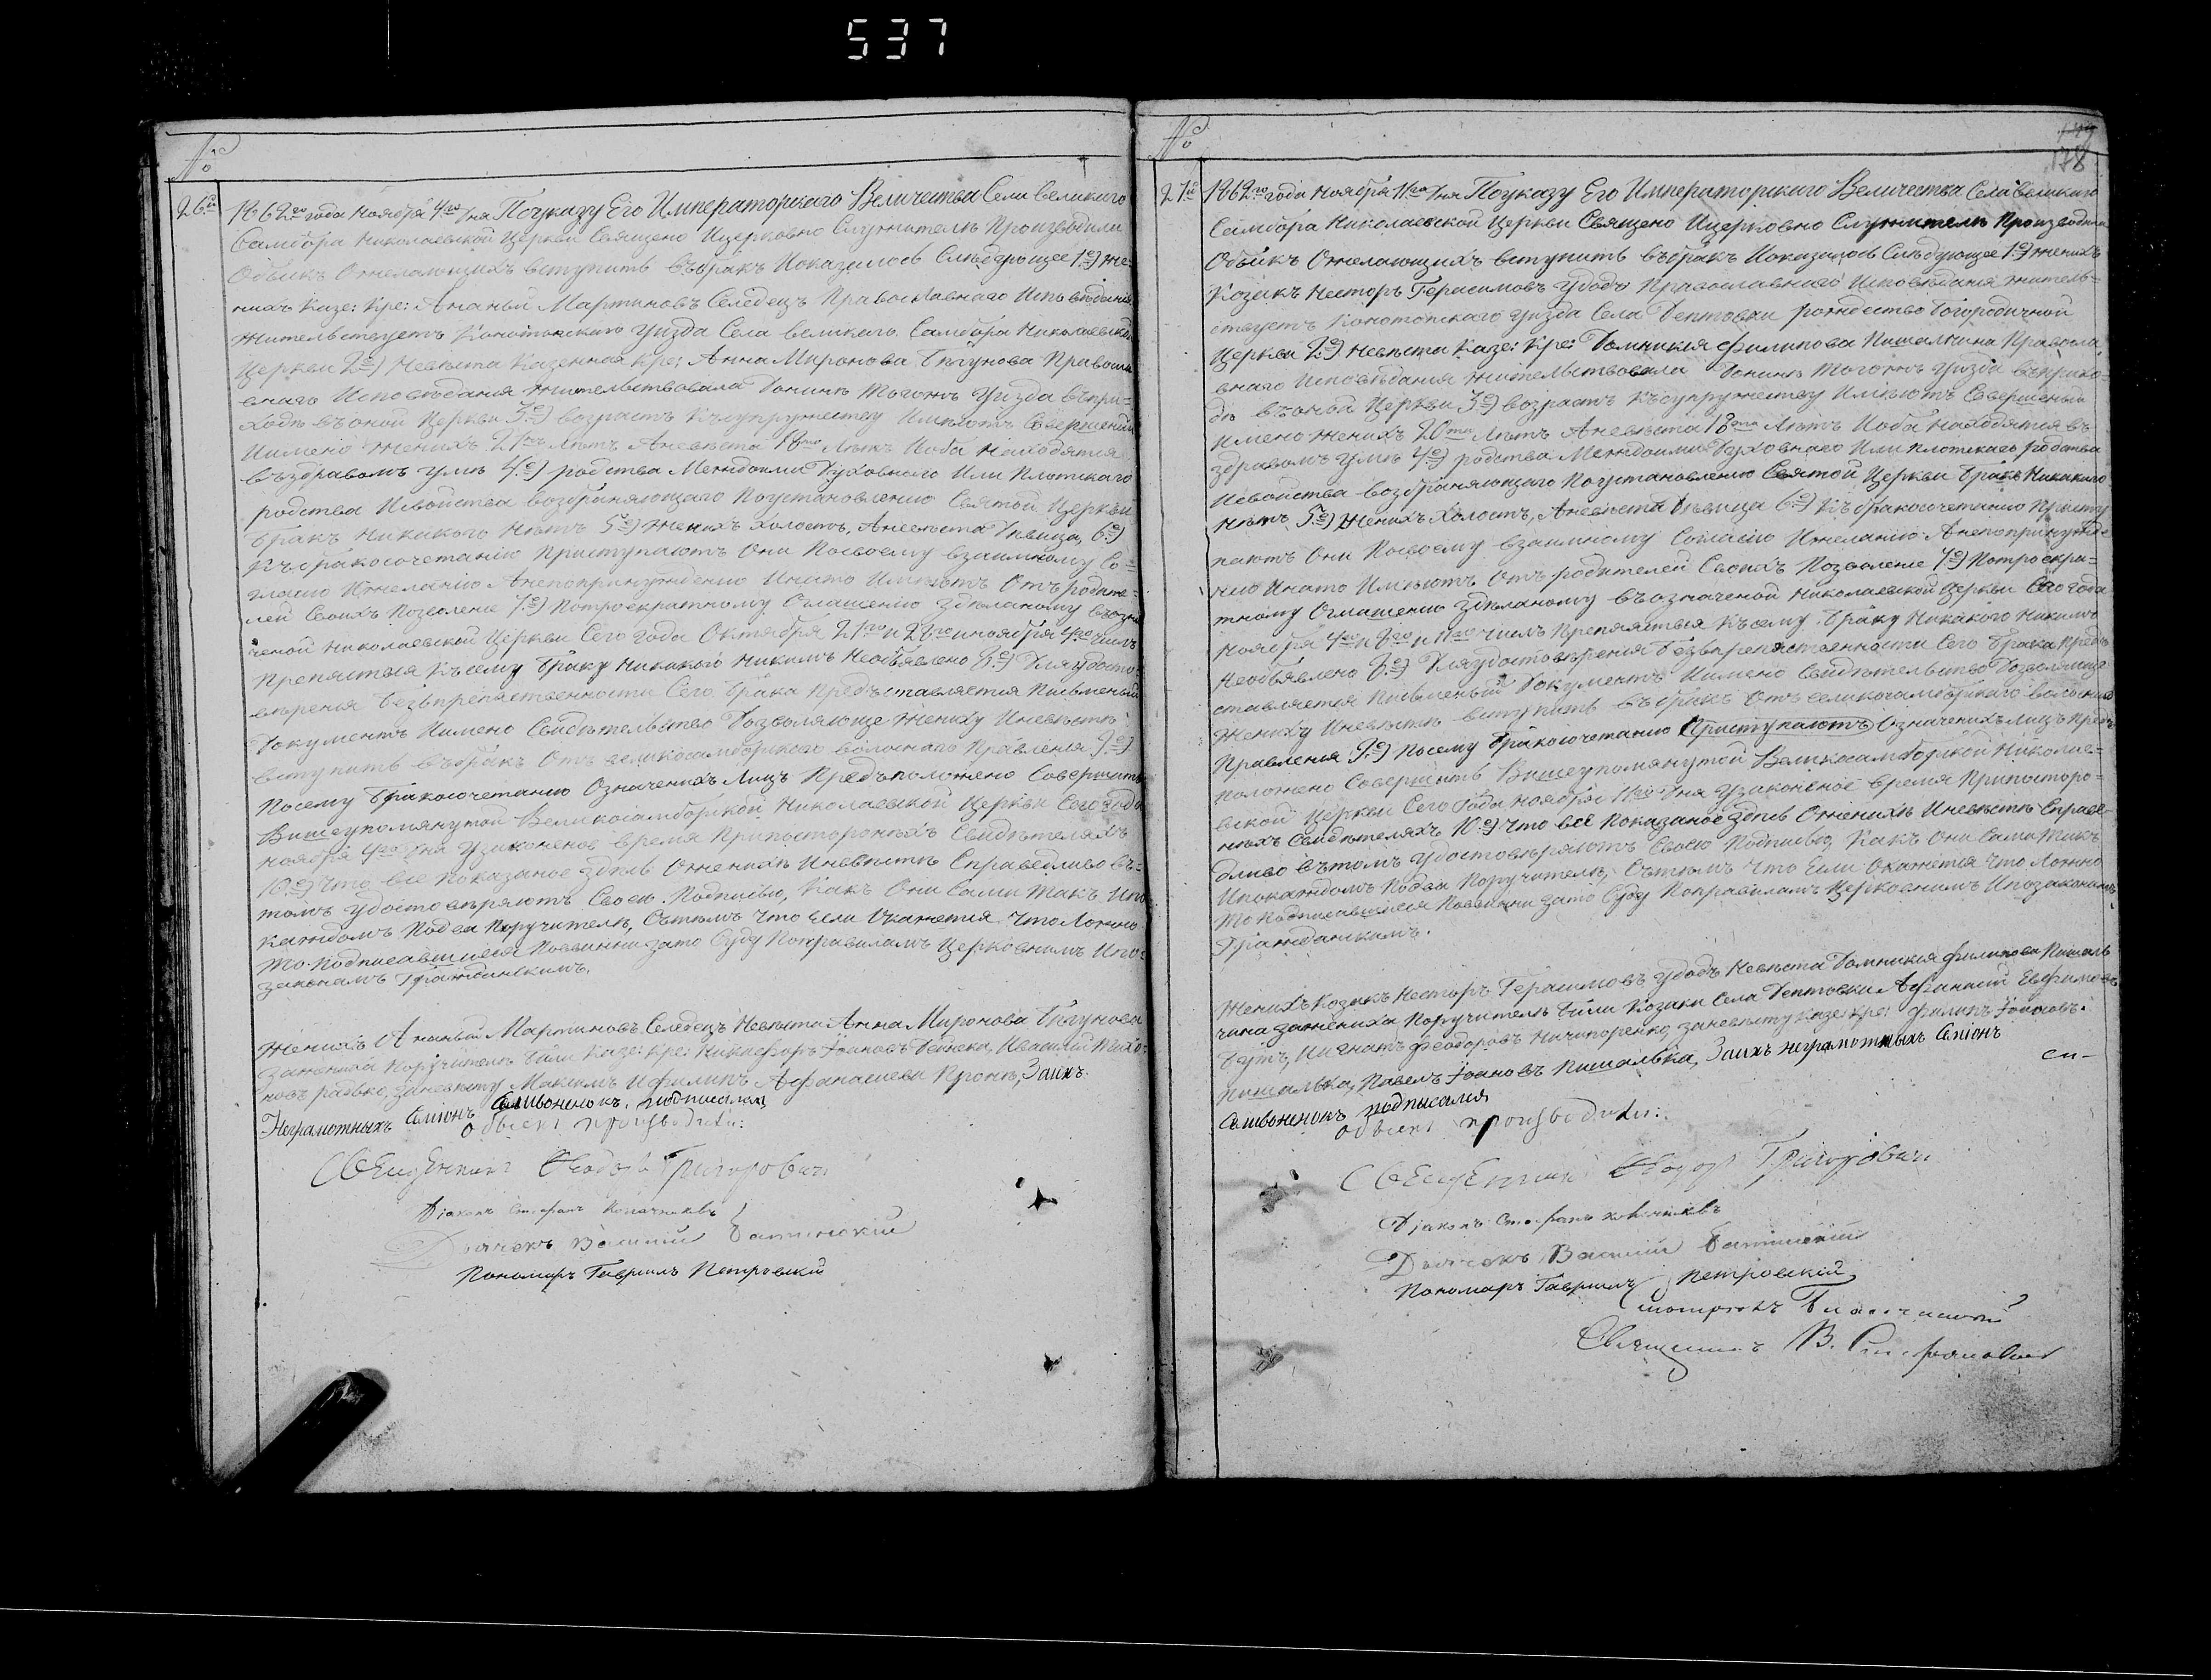 537
№
26е
1862го года Ноября 4го дня Поуказу Его Императорскаго Величества Села Великого
Самбора Николаевской Церкви Священо Ицерковно Служители Производили
Обыскъ Ожелающихъ вступить въбракъ Иоказалось Слѣдующее 1е) же-
нихъ Казе: Кре: Ананій Мартиновъ Селедецъ Православнаго Исповѣданія
жительствуетъ Конотопскаго Уизда Села Великого Самбора Николаевской
Церкви 2е) Невѣста Казенная Кре: Анна Миронова Бѣгунова Правосла
внаго Исповѣданія жительствовала Донинѣ Тогожъ Уизда въпри-
ходѣ въоной Церкви 3е) возрастъ Къ супружеству Имѣютъ Совершений
Иимено Женихъ 21го Лѣтъ Аневѣста 18то Лѣтъ Иоба Находятся
въздравомъ умѣ 4е) родства Междоими Духовного Или Плотскаго
родства Исвойства возбраняющаго Поустановлению Святой Церкви
бракъ Никакого Нѣтъ 5е) Женихъ холостъ, Аневѣста Дѣвица, 6е)
Къбракосочетанію Приступаютъ Они Посвоему взаимному Со-
гласію Ижеланію Анепопринуждению Инато Имѣютъ Отъ родите-
лей Своихъ Позволение 7е) Потроекратному Оглашению Здѣланому въозна
ченой Николаевской Церкви Сего года Октября 21го и 28го иноября 4го чисlъ
Препяствія Къ сему браку Никакого Никимъ Необъявлено 8е) Для удосто-
вѣренія безъпрепяственности Сего брака Предъставляется Писменый
Документъ Иимено Свидѣтельство Дозволяюще Жениху Иневѣстѣ
вступить въбракъ Отъ великосамборского волоснаго Правленія 9е)
Посему бракосочетанию Означенихъ Лицъ Предъположено Совершить
Вишеупомянутой Великосамборской Николаевской Церкви Сего года
ноября 4го дня Узаконеное время Припосторонихъ Свидѣтеляхъ
10е) Что все Показаное здѣсь Оженихѣ Иневѣстѣ Справедливо въ-
томъ Удостовѣряютъ Своею Подписью, Какъ Они Сами такъ Ипо
каждомъ Подва Поручителѣ, Сътѣмъ Что Если Окажется Что Ложно
то Подписавшиеся Повинни зато Суду Поправиламъ Церковнимъ Ипо-
законамъ Гражданскимъ.
Женихъ Ананій Мартиновъ Селедецъ Невѣста Анна Миронова Бѣгунова
заженихá Поручителѣ били Казе: Кре: Никифоръ Іоановъ
заневѣсту Максимъ Ифилипъ Афанасиеви Пронѣ, Заихъ
Неграмотныхъ Семіонъ Селивоненокъ. подписался
обыскъ производили:
Священникъ Ѳеодоръ Григоровичъ
Діаконъ Стефанъ
Дьячокъ Василій
Пономаръ Гавриилъ Петровскій
№
178
27й
1862го года Ноября 11го дня Поуказу Его Императорскаго Величества Села Великого
Самбора Николаевской Церкви Священо Ицерковно Служители Производили
Обыскъ Ожелающихъ вступить въбракъ Иоказалось Слѣдующее 1е) женихъ
Козакъ Несторъ Герасимовъ Удодъ Православнаго Исповѣданія житель-
ствуетъ Конотопскаго Уизда Села Дептовки рождество Богородичной
Церкви 2е) Невѣста Казе: Кре: Домникия Филипова Пишалчина Правосла
внаго Исповѣданія жительствовала Донинѣ Тогожъ Уизда въприхо-
дѣ въоной Церкви 3е) возрастъ Къ супружеству Имѣютъ Совершеный
Иимено Женихъ 20то Лѣтъ Аневѣста 18то Лѣтъ Иоба Находятся въ
здравомъ умѣ 4е) родства Междоими Духовнаго Или Плотскаго родства
Исвойства возбраняющаго Поустановлению Святой Церкви бракъ Никакого
Нѣтъ 5е) Женихъ Холостъ, Аневѣста Дѣвица 6е) Къ бракосочетанию Присту
паютъ Они Посвоему взаимному Согласію Ижеланію Анепопринужде-
нию Инато Имѣютъ Отъ родителей Своихъ Позволение 7е) Потроекра-
тному Оглашению Здѣланому въозначеной Николаевской Церкви Сего года
Ноября 4го и 8го и 11го чисlъ Препяствія Къ сему браку Никакого Никимъ
Необъявлено 8е) Для удостовѣренія безъпрепяственности Сего брака Предъ
ставляется Писменый Документъ Иимено Свидѣтельство Дозволяюще
Жениху Иневѣстѣ вступить въбракъ Отъ великосамборского волоснаго
Правленія 9е) Посему бракосочетанию Приступаютъ Означенихъ Лицъ Предъ
положено Совершить Вишеупомянутой Великосамборской Николае-
вской Церкви Сего года Ноября 11го дня Узаконеное время Припосторо-
нихъ Свидѣтеляхъ 10е) Что все Показаное здѣсь Оженихѣ Иневѣстѣ Справе-
дливо вътомъ Удостовѣряютъ Своею Подписью, Какъ Они Сами такъ
Ипокаждомъ Подва Поручителѣ, Сътѣмъ Что Если Окажется Что Ложно
то Подписавшиеся Повинни зато Суду Поправиламъ Церковнимъ Ипозаконамъ
Гражданскимъ.
Женихъ Козакъ Несторъ Герасимовъ Удодъ Невѣста Домникия Филипова Пишаль
чина заженихá Поручителѣ били Козаки Села Дептовки Афанасий Евфимовъ
Игнатъ Феодоровъ Ничипоренко, заневѣсту Казе: Кре: Филипъ Іоановъ
Пишалька, Павелъ Іоановъ Пишалька, Заихъ неграмотныхъ Семіонъ
Се-
Селивоненокъ подписался
обыскъ производили:
Священникъ Ѳеодоръ Григоровичъ
Діаконъ Стефанъ
Дьячокъ Василій
Пономаръ Гавриилъ Петровскій
Священникъ В. Стефановичъ